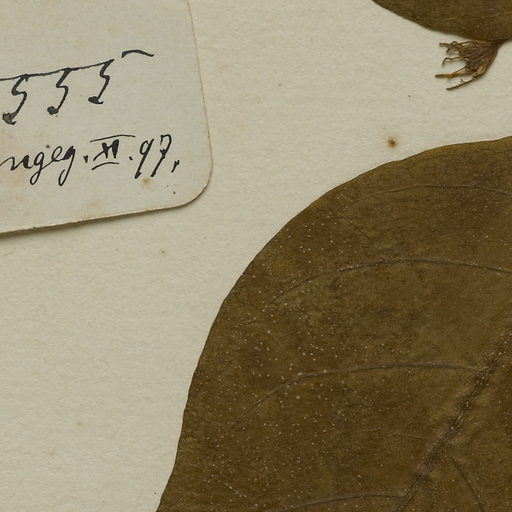 555
ngeg. XI. 97.